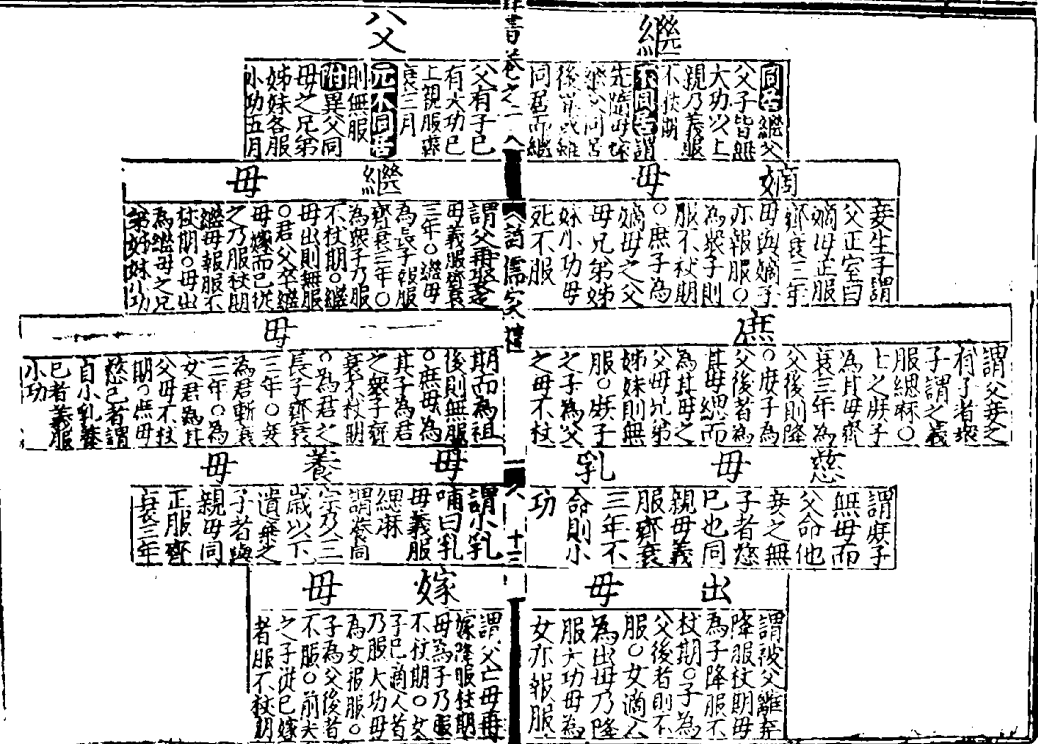 繼父
同居繼父
父子皆無
大功以上
親乃義服
不杖期
不同居謂
先隨母嫁
繼父同居
後異或雖
同居而繼
父有子已
有大功已
上親服齊
衰三月
元不同居
則無服
附異父同
母之兄弟
姊妹各服
小功五月
嫡母
妾生子謂
父正室曰
嫡母正服
齊衰三年
母為嫡子
亦報服〇
為衆子則
服不杖期
〇庶子為
嫡母之父
母兄弟姊
妹小功母
死不服
繼母
謂父再娶之
母義服齊衰
三年〇繼母
為長子報服
齊衰三年〇
為衆子乃服
不杖期〇繼
母出則無服
〇君父卒繼
母嫁而已從
之乃服杖期
繼母報服不
杖期〇母出
為繼母之兄
弟姊妹小功
庶母
謂父妾之
有子者衆
子謂之義
服緦麻〇
士之庶子
為其母齊
衰三年為
父後則降
〇庶子為
父後者為
其母緦而
為其母之
父母兄弟
姊妹則無
服〇庶子
之子為父
之母不杖
期而為祖
後則無服
〇庶母為
其子為君
之衆子齊
衰不杖期
〇為君之
長子齊衰
三年〇妾
為君斬衰
三年〇為
女君為其
父母不杖
期〇庶母
慈己者謂
自小乳養
己者義服
小功
慈母
謂庶子
無母而
父命他
妾之無
子者慈
己也同
親母義
服齊衰
三年不
命則小
功
乳母
謂小乳
哺曰乳
母義服
緦麻
養母
謂養同
宗乃三
歲以下
遺棄之
子者與
親母同
正服齊
衰三年
出母
謂被父離棄
降服杖期母
為子降服不
杖期〇子為
父後者則不
服〇女適人
為出母乃降
服大功母為
女亦報服
嫁母
謂父亡母再
嫁降服杖期
母為子乃服
不杖期〇女
子已適人者
乃服大功母
為女報服〇
子為父後者
不服〇前夫
之子從已嫁
者服不杖期
書卷之一
諸儒家禮
十三